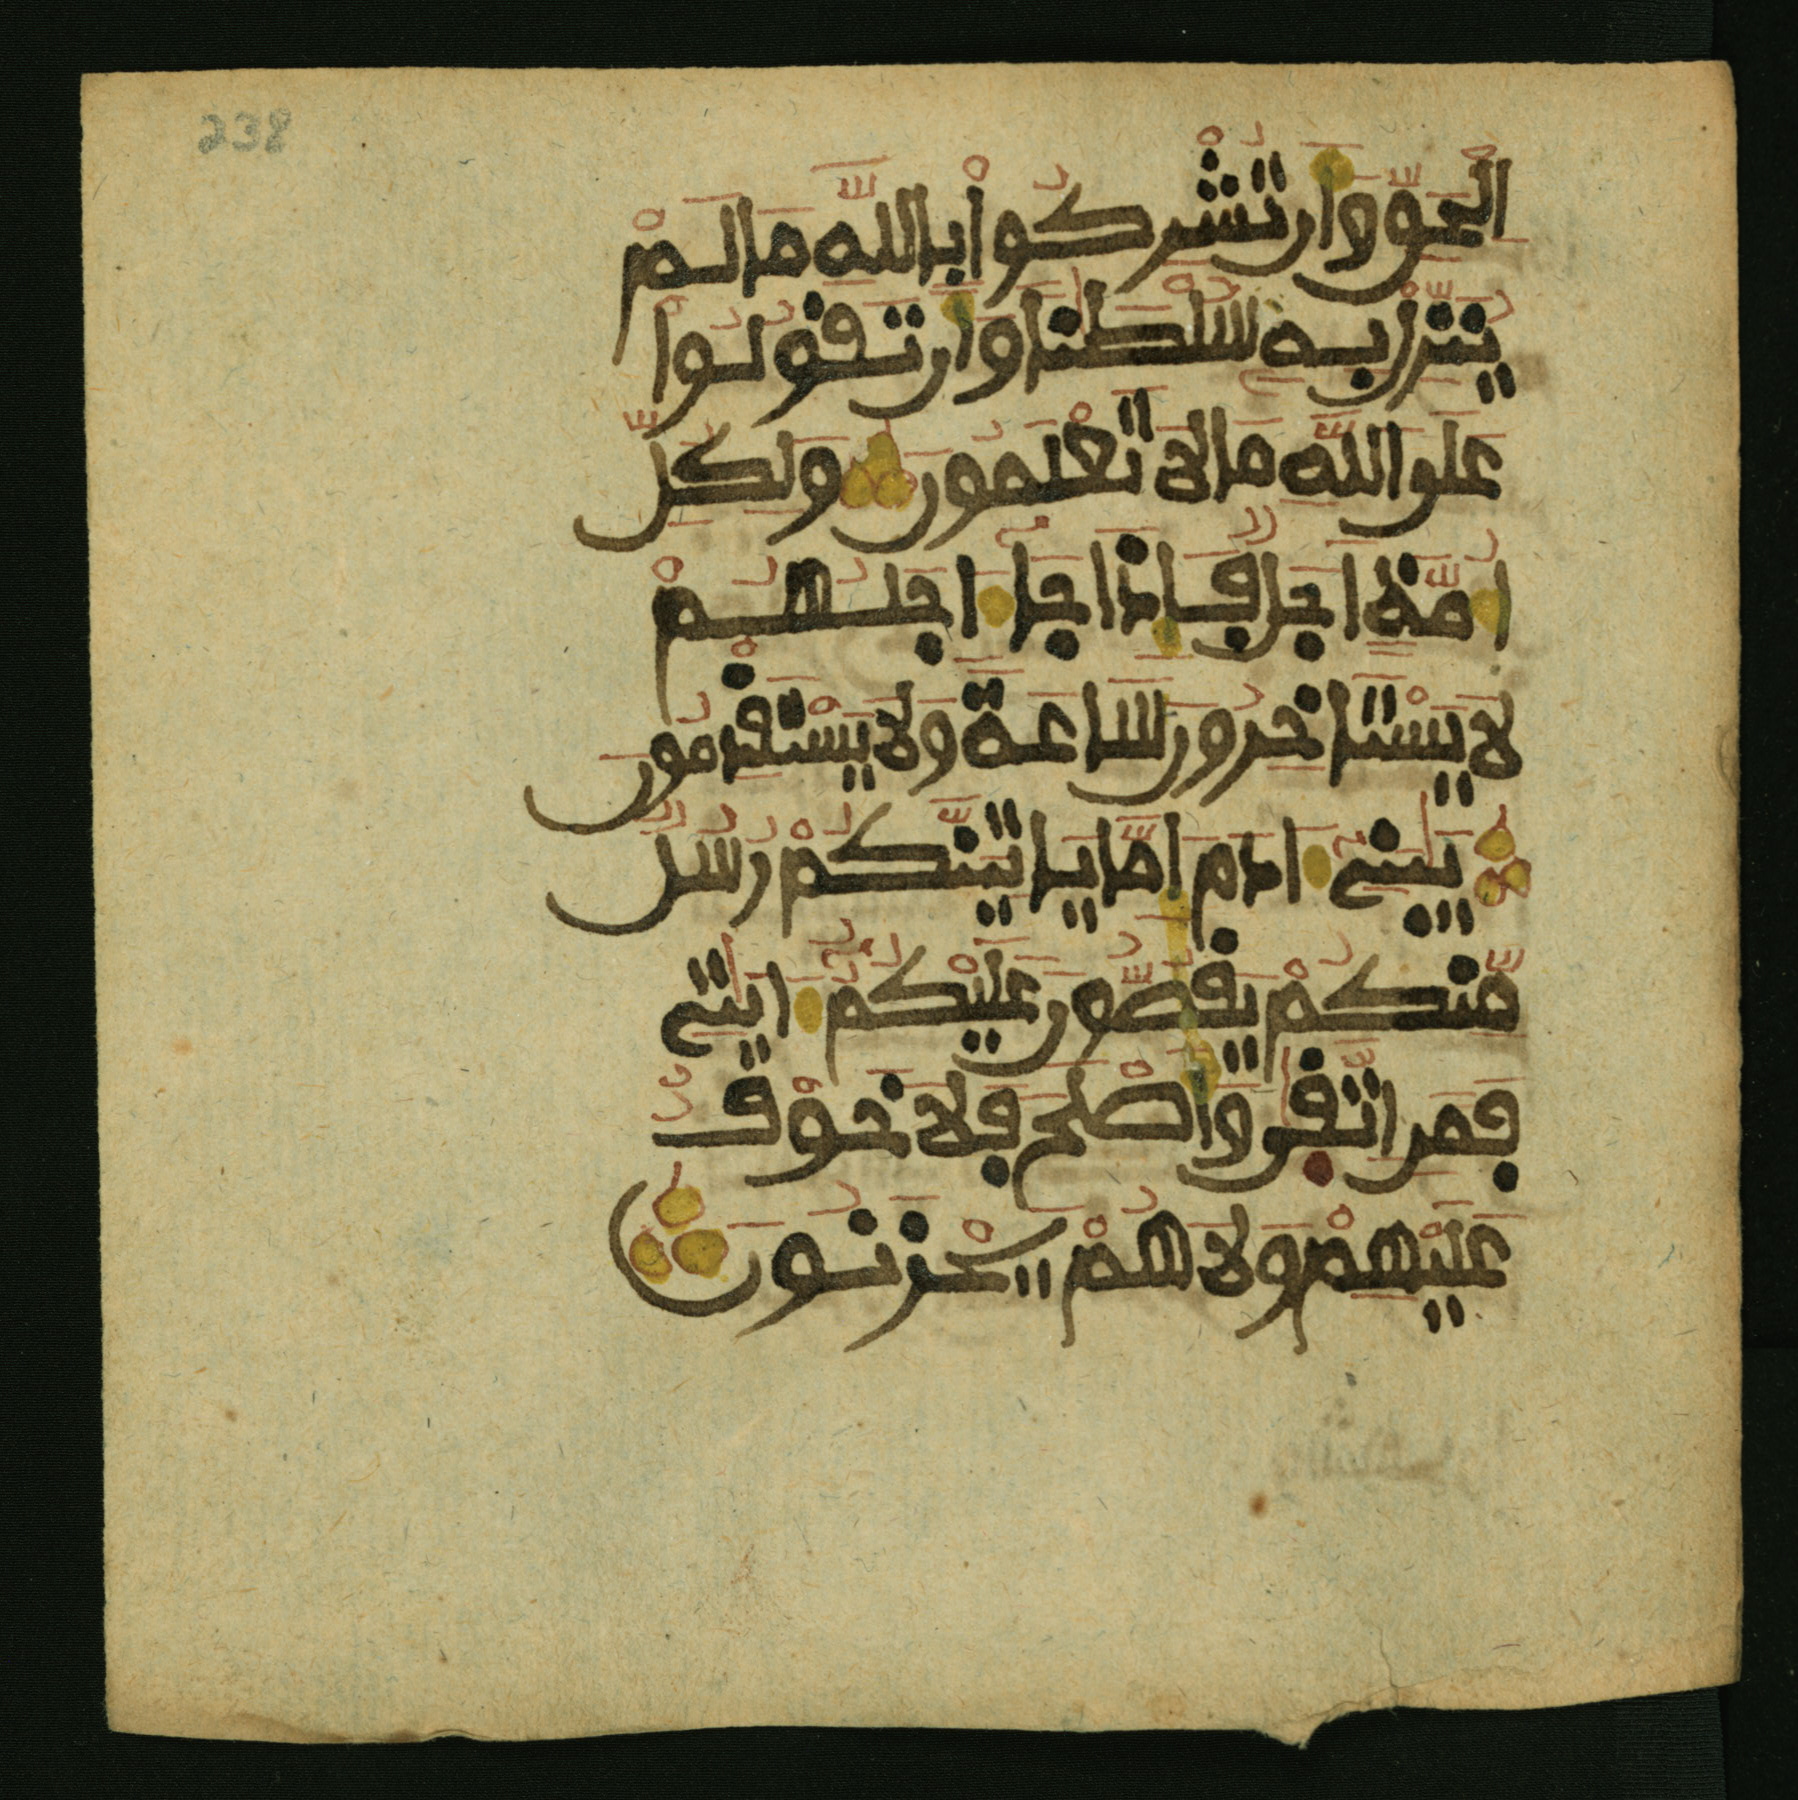 238
الْحَقِّ وَأَن تُشْرِكُوا بِاللَّهِ مَا لَمْ
يُنَزِّلْ بِهِ سُلْطَنًا وَأَن تَقُولُوا
عَلَى اللَّهِ مَا لَا تَعْلَمُونَ وَلِكُلِّ
أُمَّةٍ أَجَلٌ فَإِذَا جَا أَجَلُهُمْ
لَا يَسْتَاخِرُونَ سَاعَةً وَلَا يَسْتَقْدِمُونَ
يَبَنِي ءَادَمَ إِمَّا يَاتِيَنَّكُمْ رُسُلٌ
مِّنكُمْ يَقُصُّونَ عَلَيْكُمُ ءَايَتِي
فَمَنِ اتَّقَى وَأَصْلَحَ فَلَا خَوْفٌ
عَلَيْهِمْ وَلَا هُمْ يَحْزَنُونَ